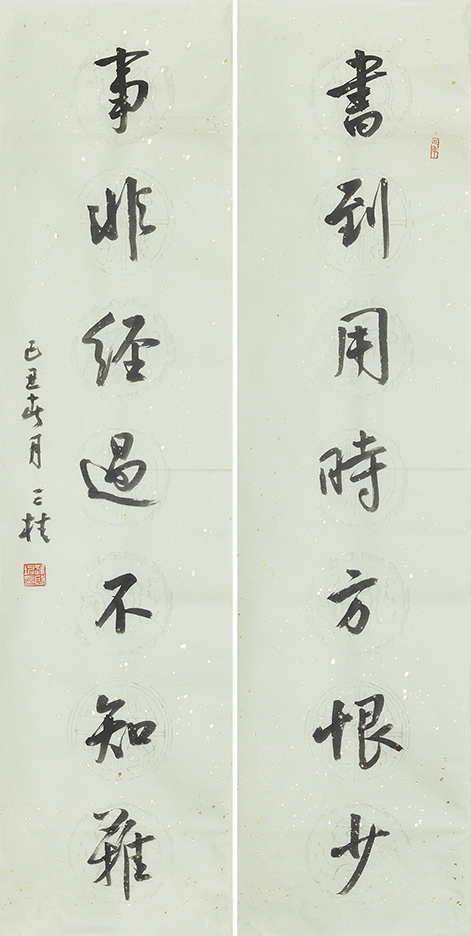 書到用時方恨少
事非經過不知難
己丑春月 三桂